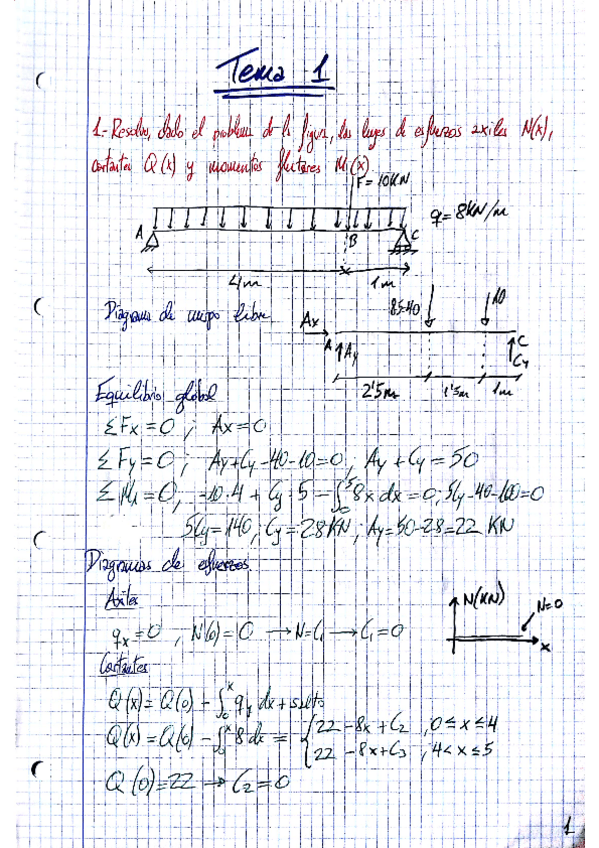 Tema 1
1.- Resolver, dado el problema de la figura, las leyes de esfuerzos axiles N(x),
cortantes Q(x) y momentos flectores M(x)
F=10KN
q=8KN/m
A
B
C
4m
1m
Diagrama de cuerpo libre
Ax
8·5=40
10
A
Ay
C
Cy
2'5m
1'5m
1m
Equilibrio global
ΣFx=0 ; Ax=0
ΣFy=0 ; Ay+Cy-40-10=0 ; Ay+Cy=50
=0, -10·4 + Cy·5 - ∫₀⁵ 8x dx = 0 ; 5Cy-40-100=0
5Cy=140 ; Cy=28KN ; Ay=50-28=22 KN
Diagramas de esfuerzos
Axiles
N(KN)
N=0
x
qx=0 , N(0)=0 → N=C₁ → C₁=0
Cortantes
Q(x)= Q(0) - ∫₀ˣ qy dx + salto
Q(x)=Q(0) - ∫₀ˣ 8 dx = { 22-8x+C₂ , 0≤x≤4
22-8x+C₃ , 4<x≤5
Q(0)=22 → C₂=0
1